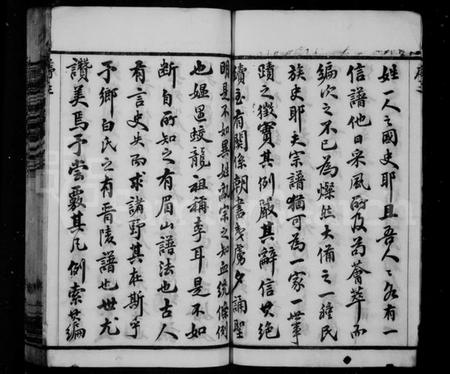 姓一人之國史耶且吾人人各有一
信譜他日采風所及為薈萃而
編次之不已為燦然大備之一種民
族史耶夫宗譜猶可為一家一世事
蹟之徵實其例嚴其辭信其絕
續至有關係朝書夕
誦聖
明是不如異姓敵宗之知血統條例
也媼畱蛟龍祖稱李耳是不如
斷自所知之有眉山譜法也古人
有言史失而求諸野其在斯乎
予鄉白氏之有晉陵譜也世尤
讚美焉予嘗覈其凡例索其編